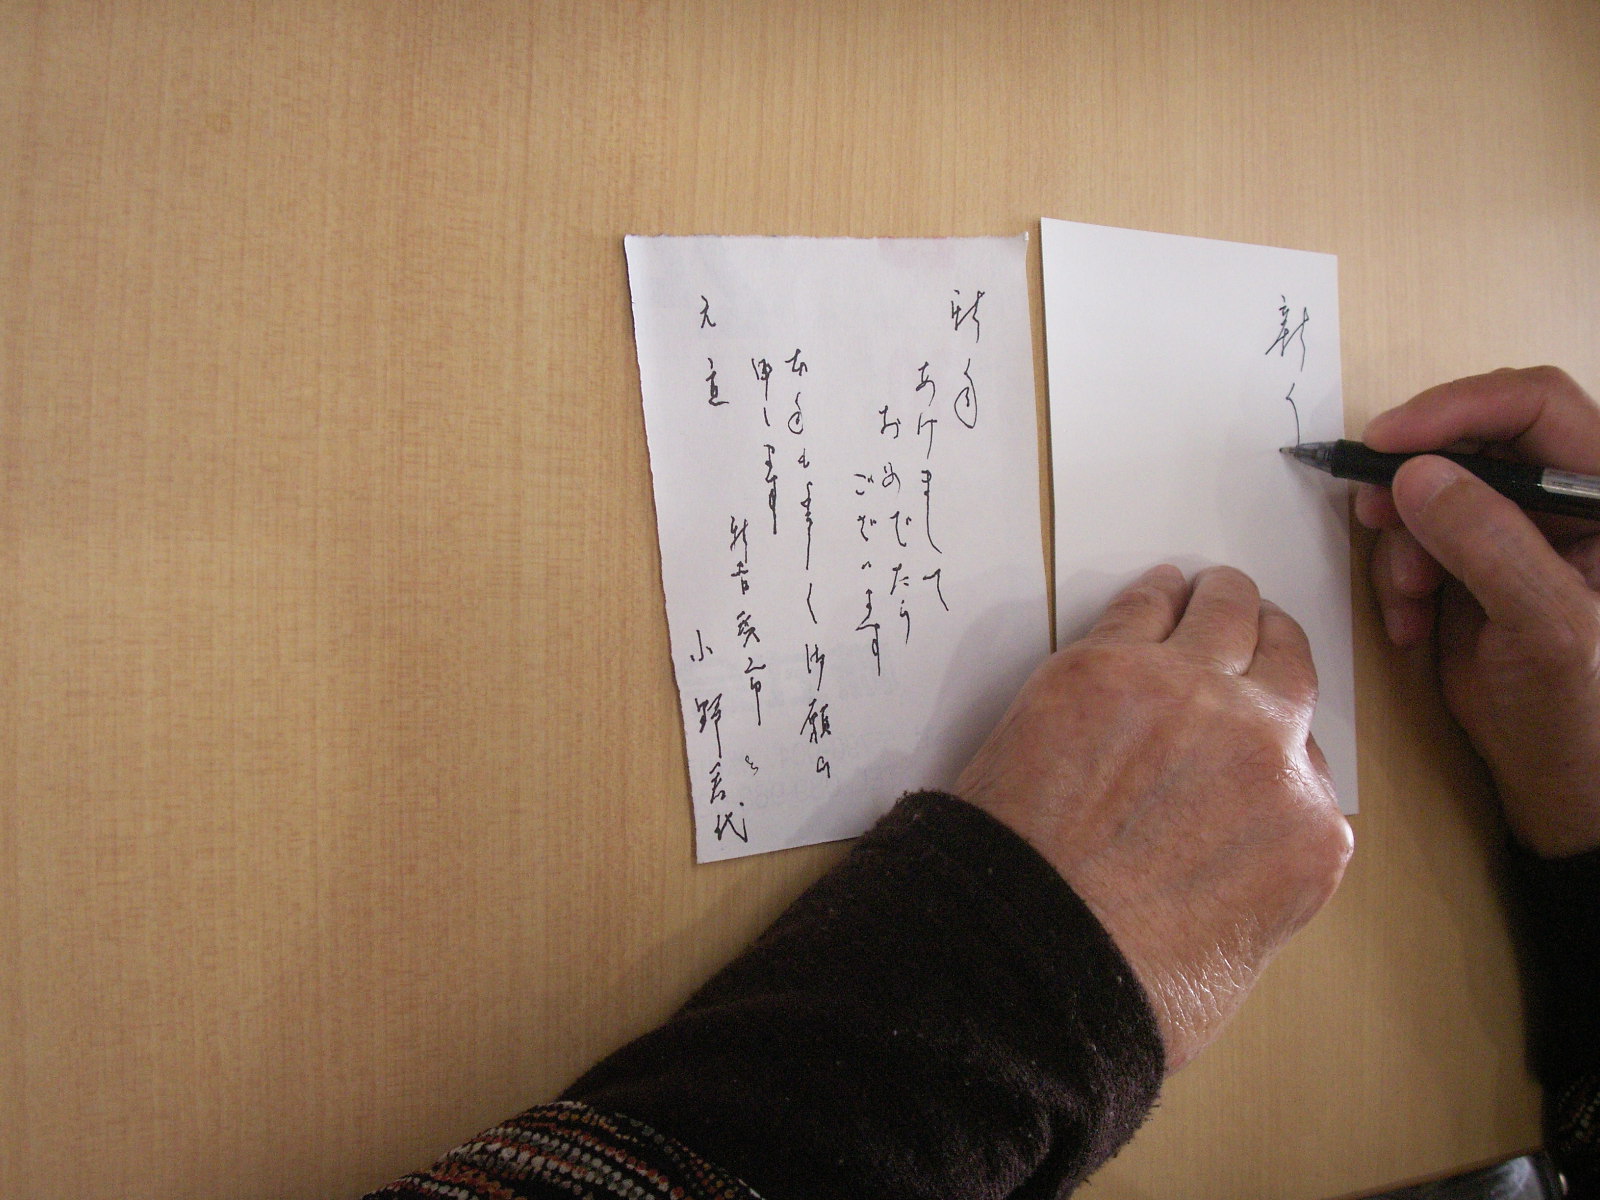 新年
あけまして
おめでたう
ございます
本年もよろしく御願ひ
申します
元旦
小野君代
新年